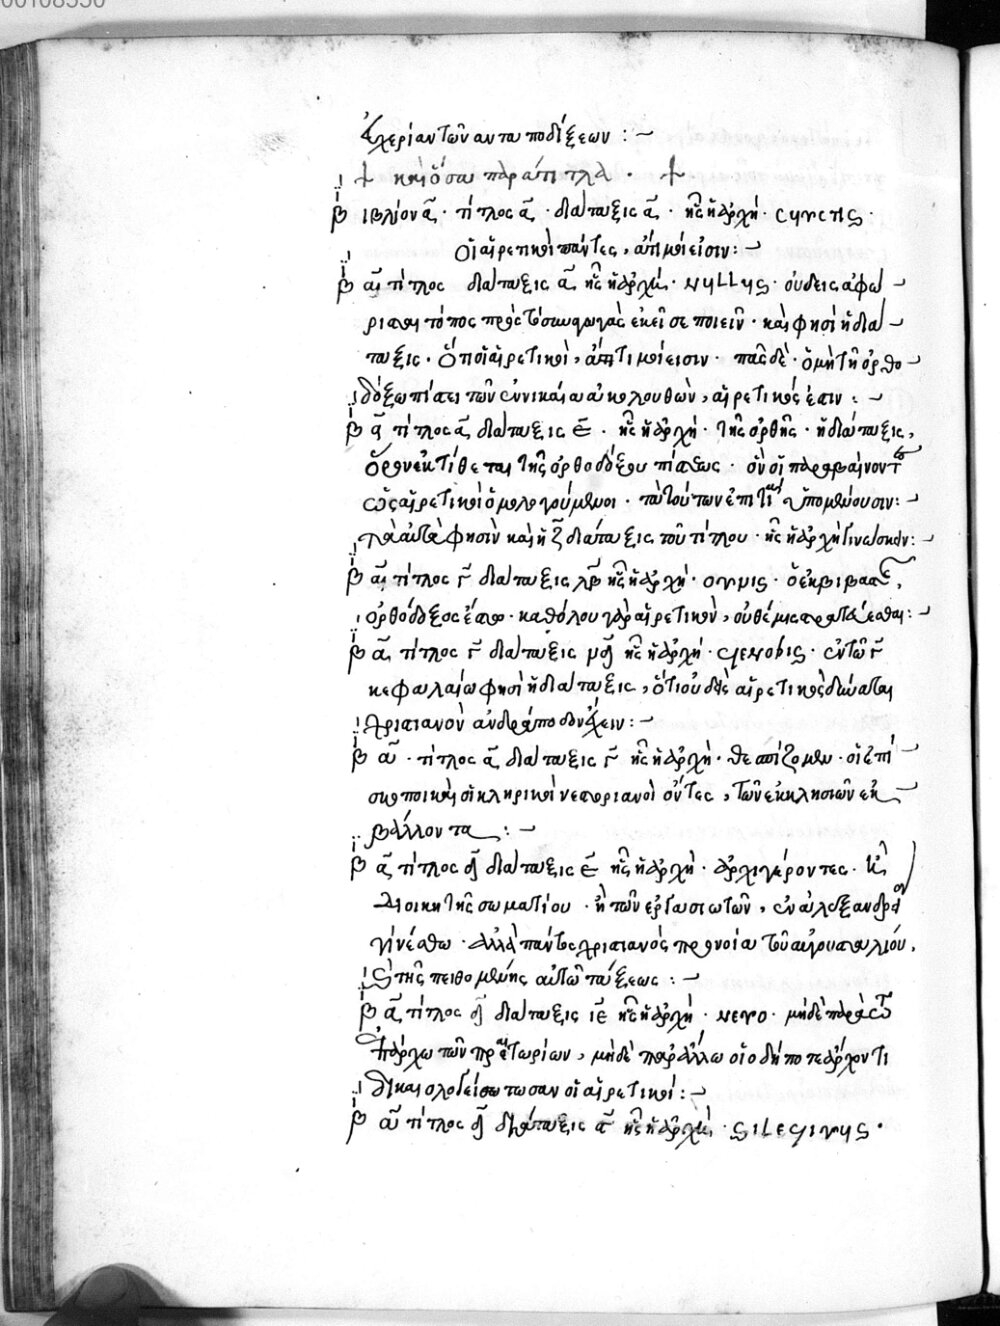 ἐχεριαν τῶν αν τα ποδίξεων :
καὶ ὅσα παράτιτλα .
βιβλίον α . τίτλος α . διάταξις α . ἧς ἡ ἀρχή . cunctos .
Οἱ αἱρετικοὶ πάντες, ἄτιμοί εἰσιν :
β α τίτλος διάταξις α ἧς ἡ ἀρχή . nullus . οὐδεὶς ἀφω
ρισται τόπος πρὸς τὸ συναγωγὰς ἐκεῖσε ποιεῖν . καὶ φησὶ ἡ διά
ταξις . Ὅτι οἱ αἱρετικοὶ, ἄτιμοί εἰσιν . πᾶς δὲ . ὁ μὴ τῇ ὀρθο
δόξω πίστει τῶν ἐν νικαία ἀκολουθῶν, αἱρετικός ἐστιν :
β α τίτλος α διάταξις ε . ἧς ἡ ἀρχή . τῆς ὀρθῆς . ἡ διάταξις,
ὅρον ἐκτίθεται τῆς ὀρθοδόξου πίστεως . ὃν οἱ παραβαίνοντες
ὡς αἱρετικοὶ ὁμολογούμενοι . τὰ τούτων ἐπιτίμια ὑπομένουσιν :
τὰ αὐτὰ φησὶν καὶ ἡ ζ διάταξις τοῦ τίτλου . ἧς ἡ ἀρχὴ γινώσκειν :
β α τίτλος γ διάταξις λβ ἧς ἡ ἀρχή . omnis . ὁ ἐκβιβαστὴς,
ὀρθόδοξος ἔστω . καθόλου γὰρ αἱρετικὸν, οὐ θέμις στρατεύεσθαι :
β α τίτλος γ διάταξις ἧς ἡ ἀρχή . cenobis . ἐν τῶ γ
κεφαλαίω φησὶ ἡ διάταξις, ὅτι οὐδεὶς αἱρετικὸς δύναται
χριστιανὸν ἀνδράποδον ἔχειν :
β α . τίτλος α διάταξις γ ἧς ἡ ἀρχή . θεσπίζομεν . οἱ ἐπί
σκοποι καὶ οἱ κληρικοὶ νεστοριανοὶ ὄντες, τῶν ἐκκλησιῶν ἐκ
βάλλονται :
β α τίτλος δ διάταξις ε ἧς ἡ ἀρχή . ἀρχιγέροντες . καὶ
διοικητὴς σωματίου . ἢ τῶν ἐργασιωτῶν, ἐν ἀλεξανδρεία
γινέσθω . ἀλλὰ πάντως χριστιανὸς προνοία τοῦ αὐγουσταλίου,
καὶ τῆς πειθομένης αὐτῶ τάξεως :
β α τίτλος δ διάταξις ιε ἧς ἡ ἀρχή . nemo . μηδὲ παρὰ τῶ
ἐπάρχω τῶν πραιτωρίων, μηδὲ παρ' ἄλλω οἱωδήποτε ἄρχοντι
δικαιολογείσθωσαν οἱ αἱρετικοί :
β α τίτλος δ διάταξις ἧς ἡ ἀρχή .